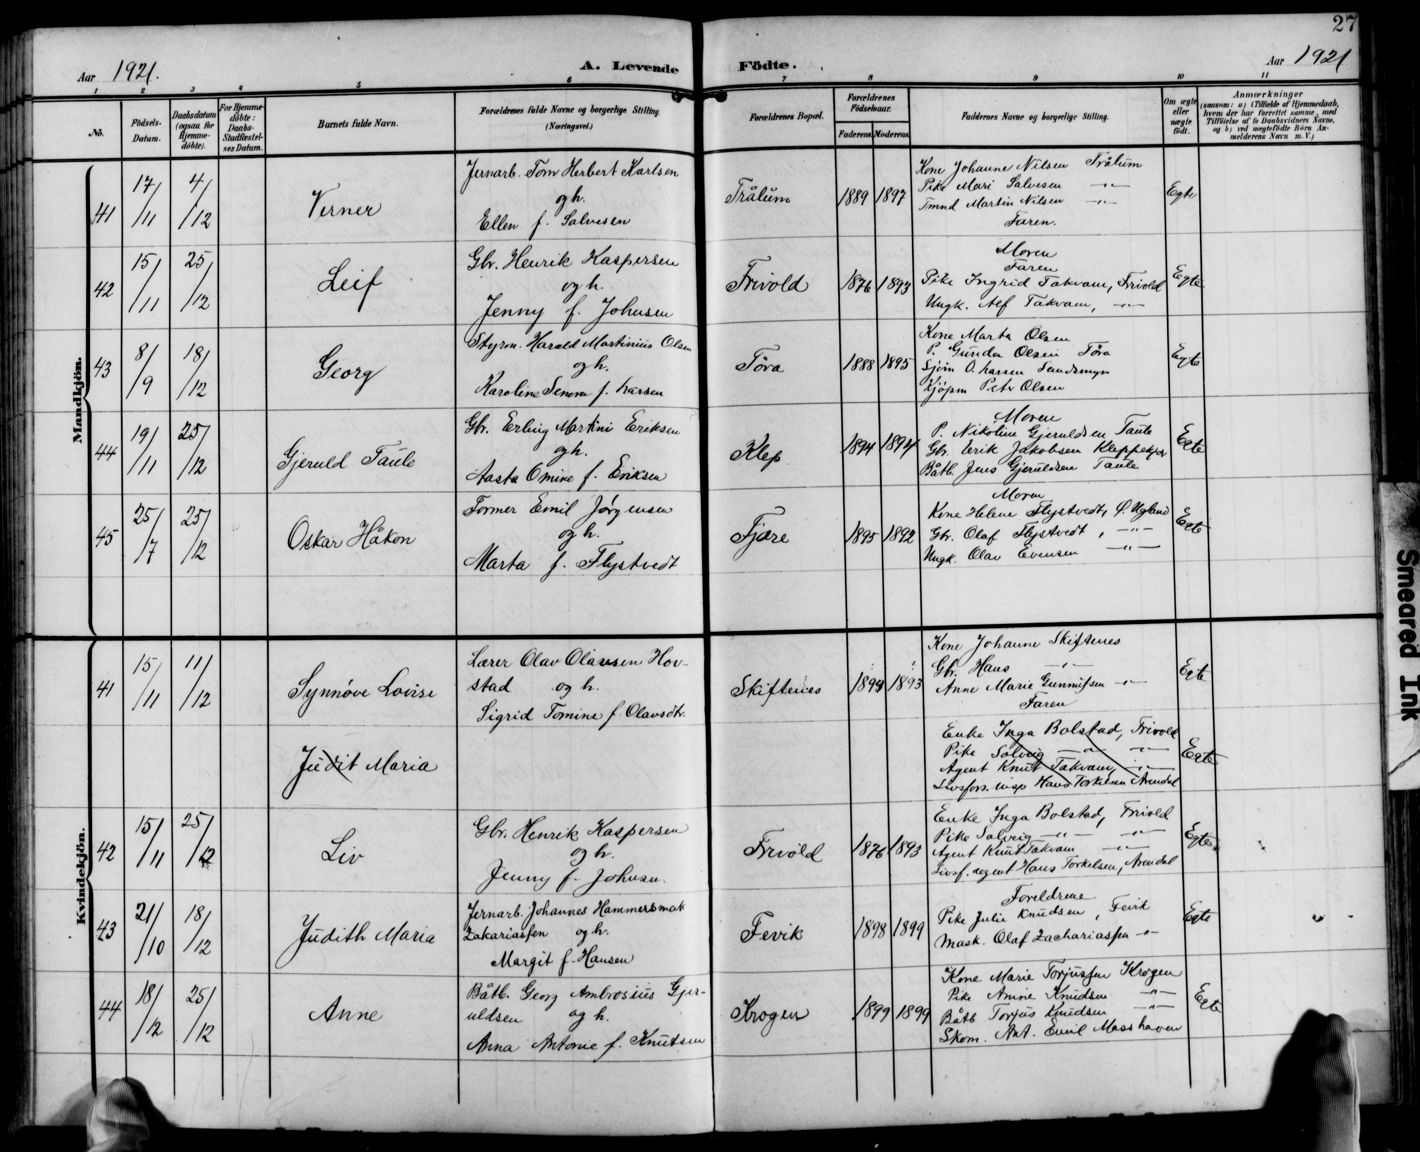 27
Aar 1921.
A. Levende Födte.
Aar 1921
1 2 3 4 5 6 7 8 9 10 11
No.
Födsels-Datum.
Daabsdatum (ogsaa for Hjemme-döbte).
For Hjemme-döbte: Daabs-Stadfæstel-ses Datum.
Barnets fulde Navn.
Forældrenes fulde Navne og borgerlige Stilling. (Næringsvei.)
Forældrenes Bopæl.
Forældrenes Födselsaar.
Faderens. Moderens.
Faddernes Navne og borgerlig Stilling.
Om ægte eller uægte födt.
Anmærkninger
(saasom: a) i Tilfælde af Hjemmedaab, hvem der har forrettet samme, med Tilföielse af to Daabsvidners Navne, og b) ved uægtefödte Börn An-melderens Navn m. V.)
Mandkjön.
41 17/11 4/12 Verner
Jernarb. Tom Herbert Karlsen
og h.
Ellen f. Salvesen
Trålum 1889 1897
Kone Johanne Nilsen Trålum
Pike Mari Salvesen -"-
Tmnd Martin Nilsen -"-
Faren.
Egte
42 15/11 25/12 Leif
Gbr. Henrik Kaspersen
og h.
Jenny f. Johnsen
Frivold 1876 1893
Moren
Faren
Pike Ingrid Takvam, Frivold
Ungk. Alf Takvam, -"-
Egte
43 8/9 18/12 Georg
Styrm. Harald Martinius Olsen
og h.
Karoline Senora f. Larsen
Töra 1888 1895
Kone Marta Olsen
P. Gunda Olsen Töra
Sjöm O. Larsen Sandsmyr
Kjöpm Peter Olsen
Egte
44 19/11 25/12 Gjeruld Taule
Gbr. Erling Martini Eriksen
og h.
Aasta Omine f. Eriksen
Klep 1894 1894
Moren
P. Nikoline Gjeruldsen Taule
Gbr. Erik Jakobsen Kleppekjær
Båtb. Jens Gjeruldsen Taule
Egte
45 25/7 25/12 Oskar Håkon
Former Emil Jörgensen
og h.
Marta f. Flystvedt
Fjære 1895 1892
Moren
Kone Helene Flystvedt, Ö. Ugland
Gbr. Olaf Flystvedt, -"-
Ungk. Olav Evensen -"-
Egte
Kvindekjön.
41 15/11 11/12 Synnöve Lovise
Lærer Olav Olavsen Hov-
stad og h.
Sigrid Tomine f. Olavsdtr.
Skiftenes 1899 1893
Kone Johanne Skiftenes
Gbr. Hans -"-
Anne Marie Gunnufsen -"-
Faren
Egte
Judit Maria
Enke Inga Bolstad, Frivold
Pike Solveig -"- -"-
Agent Knut Takvam, -"-
Livsfors. insp Hans Torkelsen Arendal
Egte
42 15/11 25/12 Liv
Gbr. Henrik Kaspersen
og h.
Jenny f. Johnsen.
Frivold 1876 1893
Enke Inga Bolstad, Frivold
Pike Solveig -"- -"-
Agent Knut Takvam -"-
Livsf. agent Hans Torkelsen, Arendal
Egte
43 21/10 18/12 Judith Maria
Jernarb. Johannes Hammersmak
Zakariassen og h.
Margit f. Hansen
Fevik 1898 1899
Foreldrene
Pike Julie Knudsen, Fevik
Mask. Olaf Zachariassen -"-
Egte
44 18/12 25/12 Anne
Båtb. Georg Ambrosius Gjer-
uldsen og h.
Anna Antonie f. Knutsen
Krogen 1899 1899
Kone Marie Torjussen Krogen
Pike Amine Knudsen -"-
Båtb Torjus Knudsen -"-
Skom. Ant. Emil Masshaven
Egte
Smeared Ink